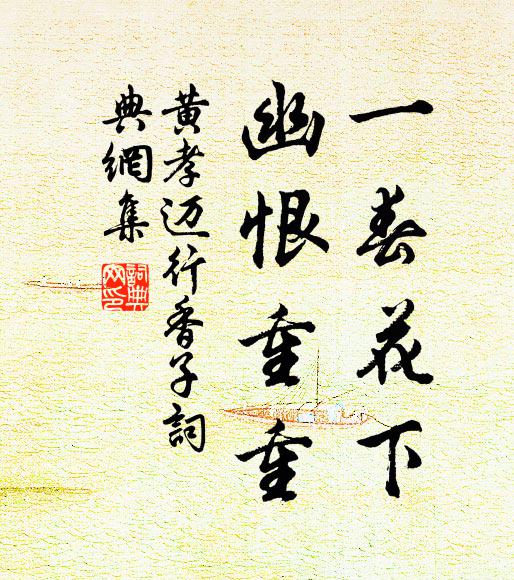 一春花下
幽恨重重
黄孝迈行香子詞
典網集
詞典网印